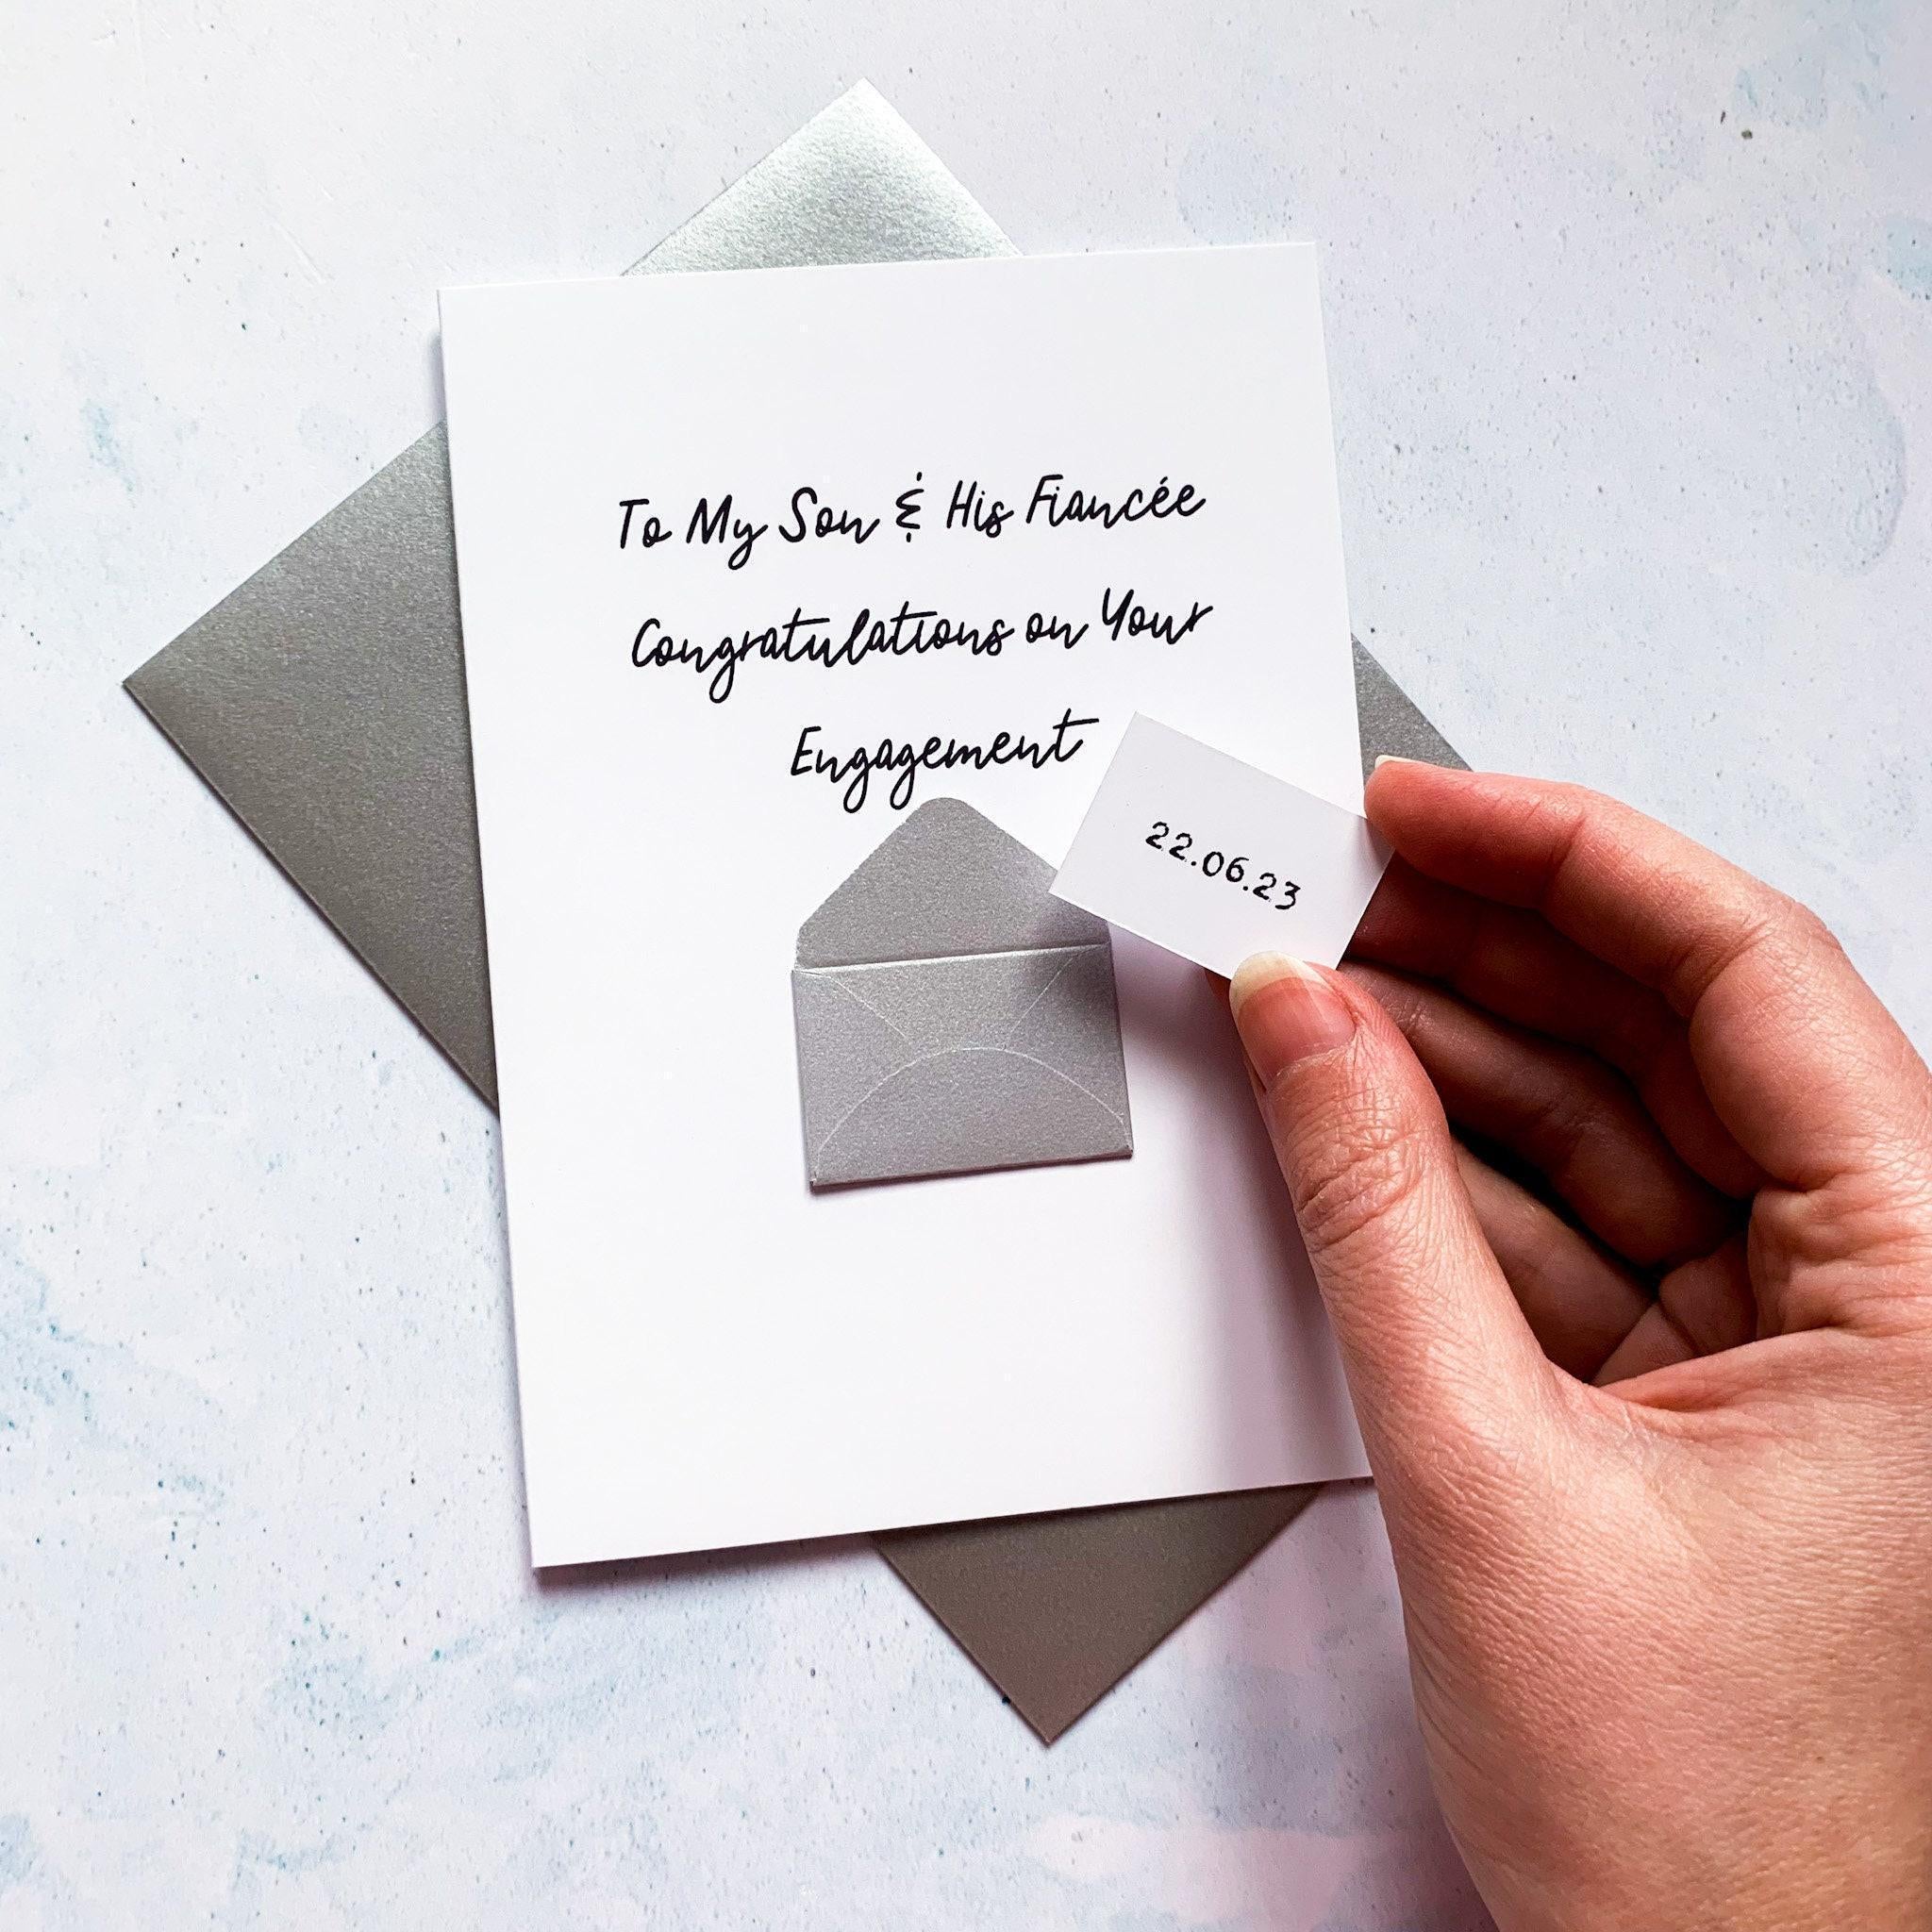 To My Son & His Fiancée
Congratulations on Your
Engagement
22.06.23